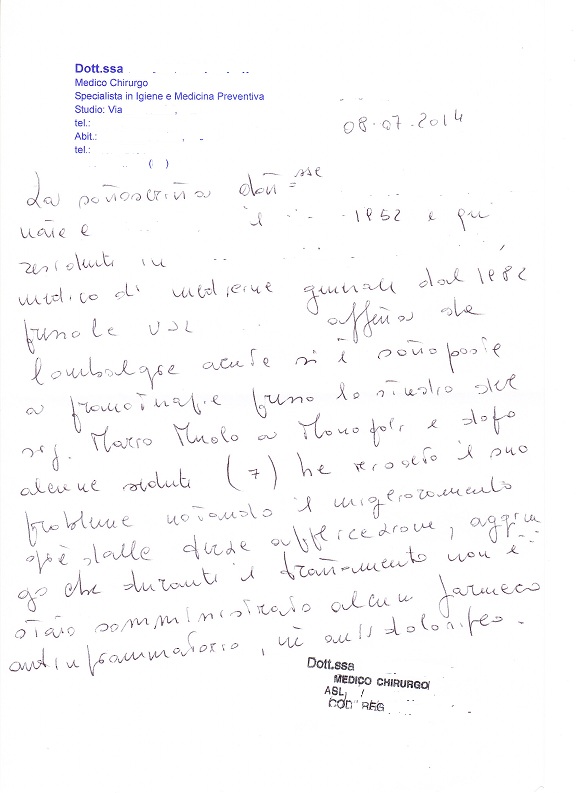 Dott.ssa
Medico Chirurgo
Specialista in Igiene e Medicina Preventiva
Studio: Via
tel.:
Abit.:
tel.:
( )
08.07.2014
La sottoscritta dott.sse
nata e il 1952 e qui
residente in
medico di medicina generale dal 1982
presso le USL affetta da
lombalgie acute si è sottoposta
a pranoterapie presso lo studio del
sig. Marco Muolo a Monopoli e dopo
alcune sedute (7) he risolto il suo
problema notando il miglioramento
già dalle applicazione, aggiun
go che durante il trattamento non è
stato somministrato alcun farmaco
antinfiammatorio, nè antidolorifico.
Dott.ssa
MEDICO CHIRURGO
ASL /
COD REG